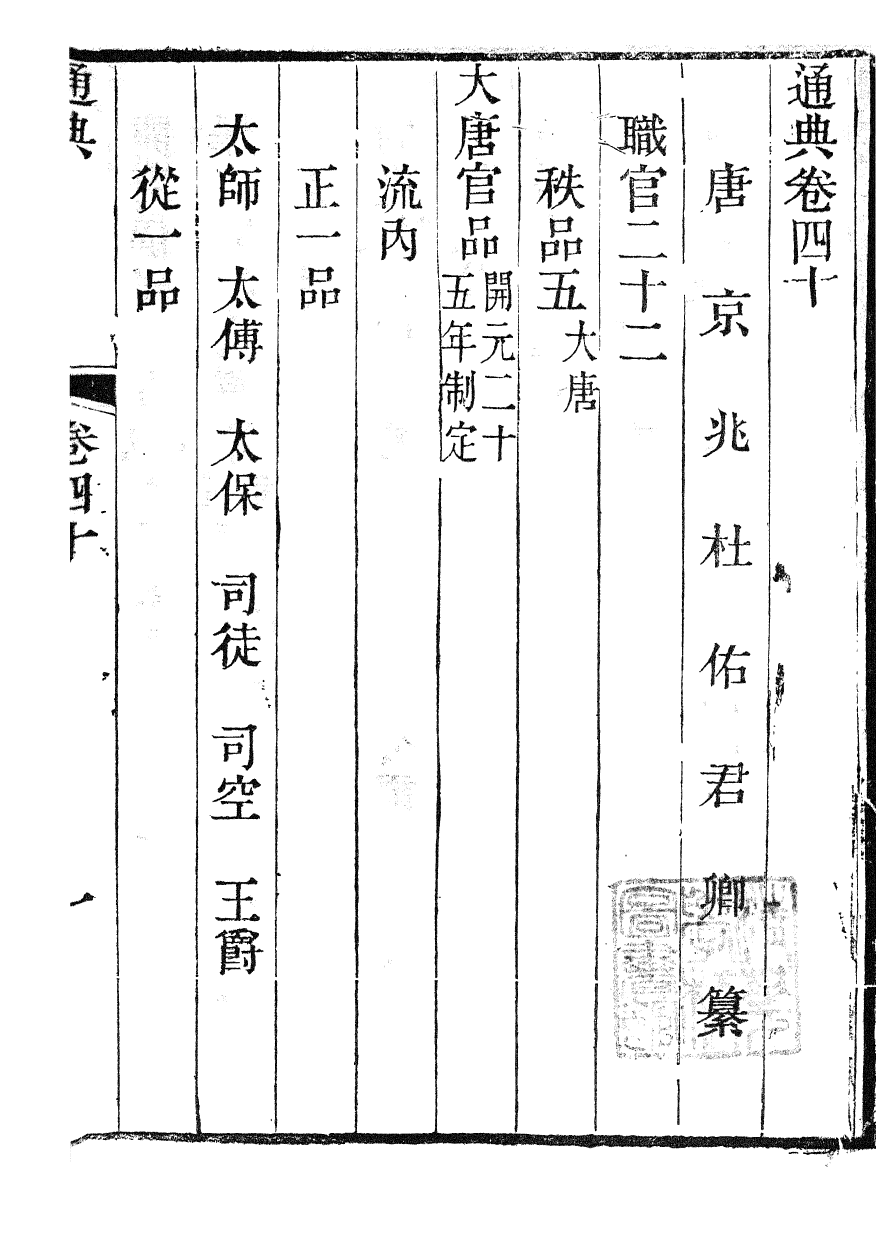 通典卷四十
唐京兆杜佑君卿纂
職官二十二
秩品五大唐
大唐官品開元二十五年制定
流內
正一品
太師　太傅　太保　司徒　司空　王爵
從一品
通典　卷四十　一